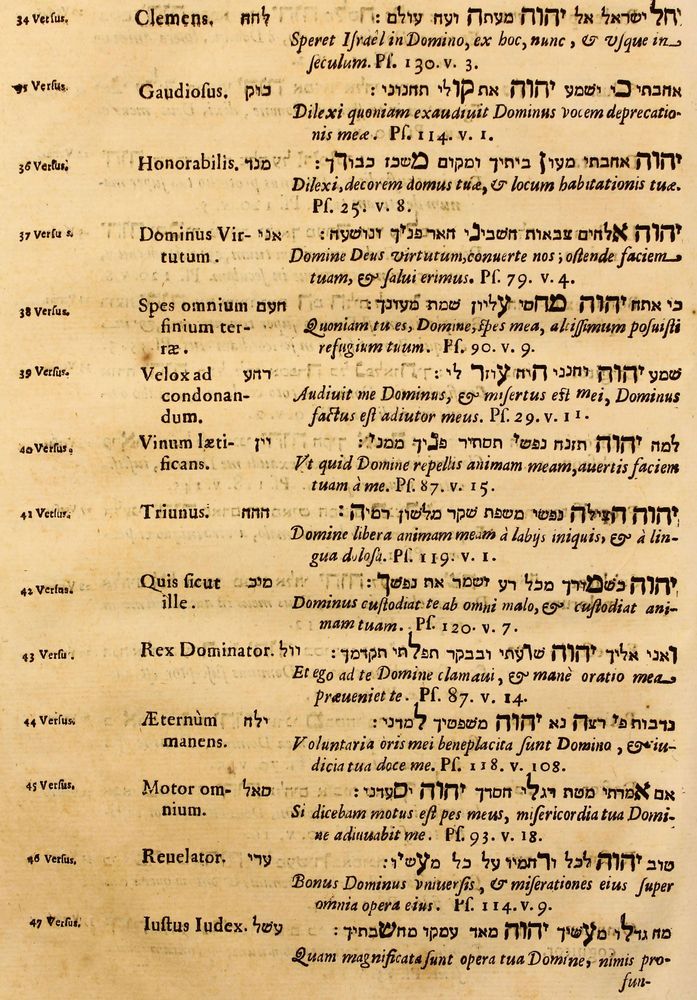 34 Verſus. Clemens. לחח יחל ישראל אל יהוה מעתה ועד עולם :
Speret Iſraël in Domino, ex hoc, nunc, & vſque in
ſeculum. Pſ. 130. v. 3.
35 Verſus. Gaudioſus. כוק אהבתי כי ישמע יהוה את קולי תחנוני :
Dilexi quoniam exaudiuit Dominus vocem deprecatio-
nis meæ. Pſ. 114. v. 1.
36 Verſus. Honorabilis. מנד יהוה אהבתי מעון ביתיך ומקום משכז כבודך :
Dilexi, decorem domus tuæ, & locum habitationis tuæ.
Pſ. 25. v. 8.
37 Verſus. Dominus Vir- אני יהוה אלהים צבאות השביני האר פניך ונושעה :
tutum. Domine Deus virtutum, conuerte nos; oſtende faciem
tuam, & ſalui erimus. Pſ. 79. v. 4.
38 Verſus. Spes omnium חעם כי אתה יהוה מחסי עליון שמת מעונך :
finium ter- Quoniam tu es, Domine, ſpes mea, altiſſimum poſuiſti
ræ. refugium tuum. Pſ. 90. v. 9.
39 Verſus. Velox ad רהע שמע יהוה וחנני היה עוזר לי :
condonan- Audiuit me Dominus, & miſertus eſt mei, Dominus
dum. factus eſt adiutor meus. Pſ. 29. v. 11.
40 Verſus. Vinum læti- ייז למה יהוה תזנח נפשי תסתיר פניך ממני :
ficans. Vt quid Domine repellis animam meam, auertis faciem
tuam à me. Pſ. 87. v. 15.
41 Verſus. Triunus. ההה יהוה הצילה נפשי משפת שקר מלשון רמיה :
Domine libera animam meam à labijs iniquis, & à lin-
gua doloſa. Pſ. 119. v. 1.
42 Verſus. Quis ſicut מיכ יהוה ישמורך מכל רע ישמר את נפשך :
ille. Dominus cuſtodiat te ab omni malo, & cuſtodiat ani-
mam tuam. Pſ. 120. v. 7.
43 Verſus. Rex Dominator. וול ואני אליך יהוה שועתי ובבקר תפלתי תקדמך :
Et ego ad te Domine clamaui, & manè oratio mea
præueniet te. Pſ. 87. v. 14.
44 Verſus. Æternùm ילה נדבות פי רצה נא יהוה משפטיך למדני :
manens. Voluntaria oris mei beneplacita ſunt Domino, & iu-
dicia tua doce me. Pſ. 118. v. 108.
45 Verſus. Motor om- סאל אם אמרתי מטת רגלי חסדך יהוה יסעדני :
nium. Si dicebam motus eſt pes meus, miſericordia tua Domi-
ne adiuuabit me. Pſ. 93. v. 18.
46 Verſus. Reuelator. ערי טוב יהוה לכל ורחמיו על כל מעשיו :
Bonus Dominus vniuerſis, & miſerationes eius ſuper
omnia opera eius. Pſ. 114. v. 9.
47 Verſus. Iuſtus Iudex. עשל מה גדלו מעשיך יהוה מאד עמקו מחשבתיך :
Quam magnificata ſunt opera tua Domine, nimis pro-
fun-